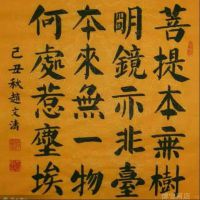 菩提本無樹
明鏡亦非臺
本來無一物
何處惹塵埃
己丑秋趙文濤